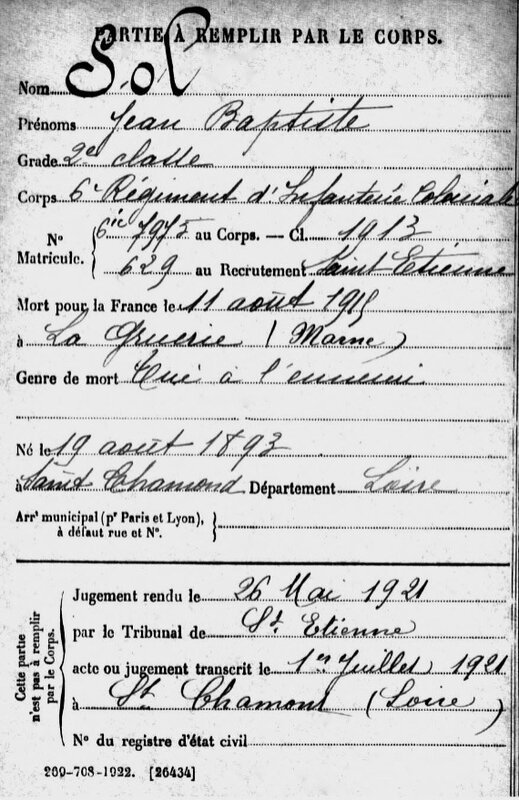 PARTIE À REMPLIR PAR LE CORPS.
Nom Sol
Prénoms Jean Baptiste
Grade 2e classe
Corps 6e Régiment d'Infanterie Coloniale
N° Matricule. { 6ic 7975 au Corps. — Cl. 1913
629 au Recrutement Saint Etienne
Mort pour la France le 11 août 1915
à La Gruerie (Marne)
Genre de mort Tué à l'ennemi
Né le 19 août 1893
à Saint Chamond Département Loire
Arrt municipal (pr Paris et Lyon), }
à défaut rue et N°.
Cette partie n'est pas à remplir par le Corps.
Jugement rendu le 26 Mai 1921
par le Tribunal de St. Etienne
acte ou jugement transcrit le 1er Juillet 1921
à St. Chamond (Loire)
N° du registre d'état civil
269-708-1922. [26434]